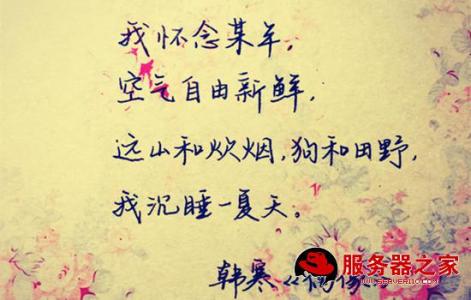 我怀念某年，
空气自由新鲜，
远山和炊烟，狗和田野，
我沉睡一夏天。
韩寒《
服务器之家